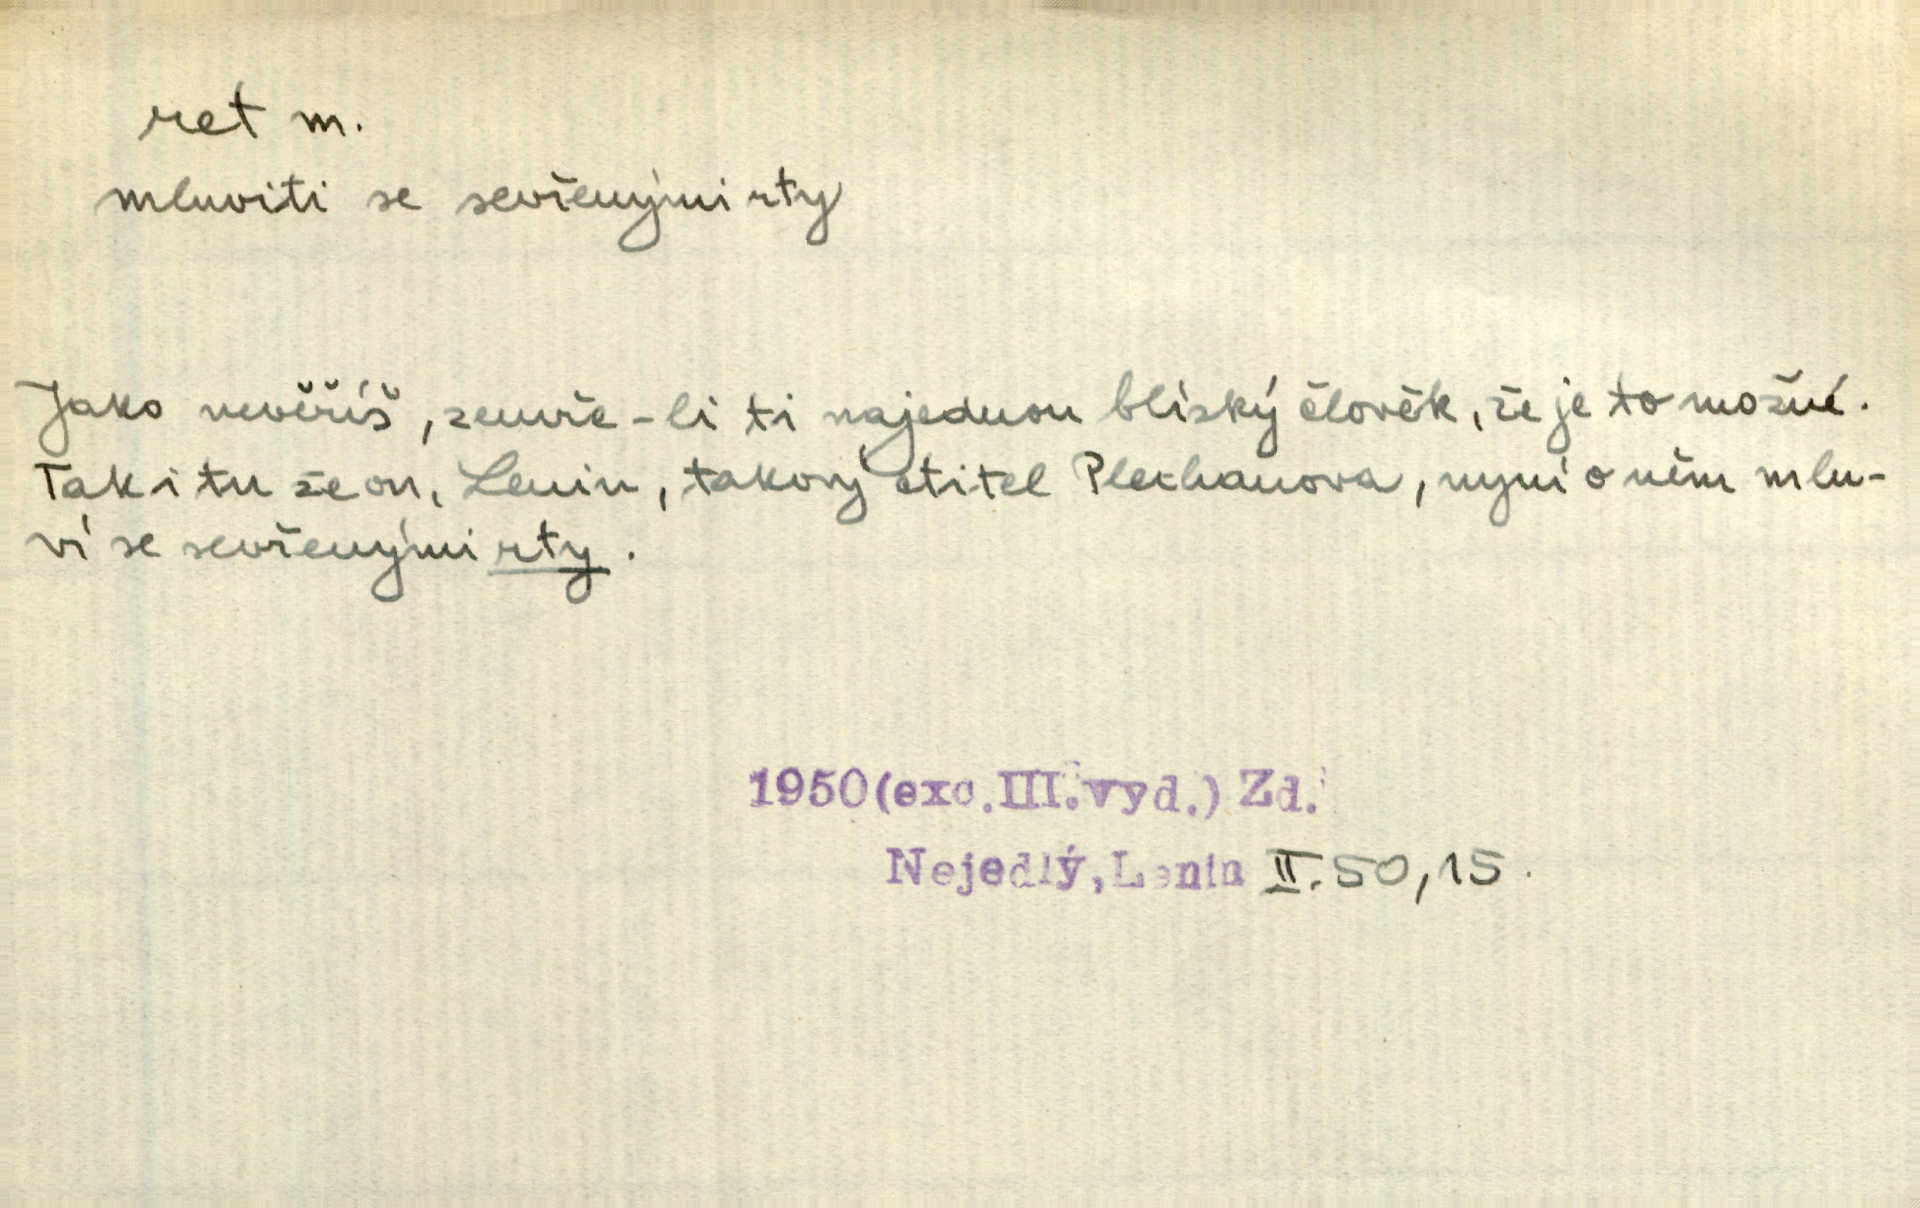 ret m.
mluviti se sevřenými rty
Jako nevěříš, zemře-li ti najednou blízký člověk, že je to možné.
Tak i tu že on, Lenin, takový ctitel Plechanova, nyní o něm mlu-
ví se sevřenými rty.
1950(exc.III.vyd.) Zd.
Nejedlý, Lenin II.50,15.